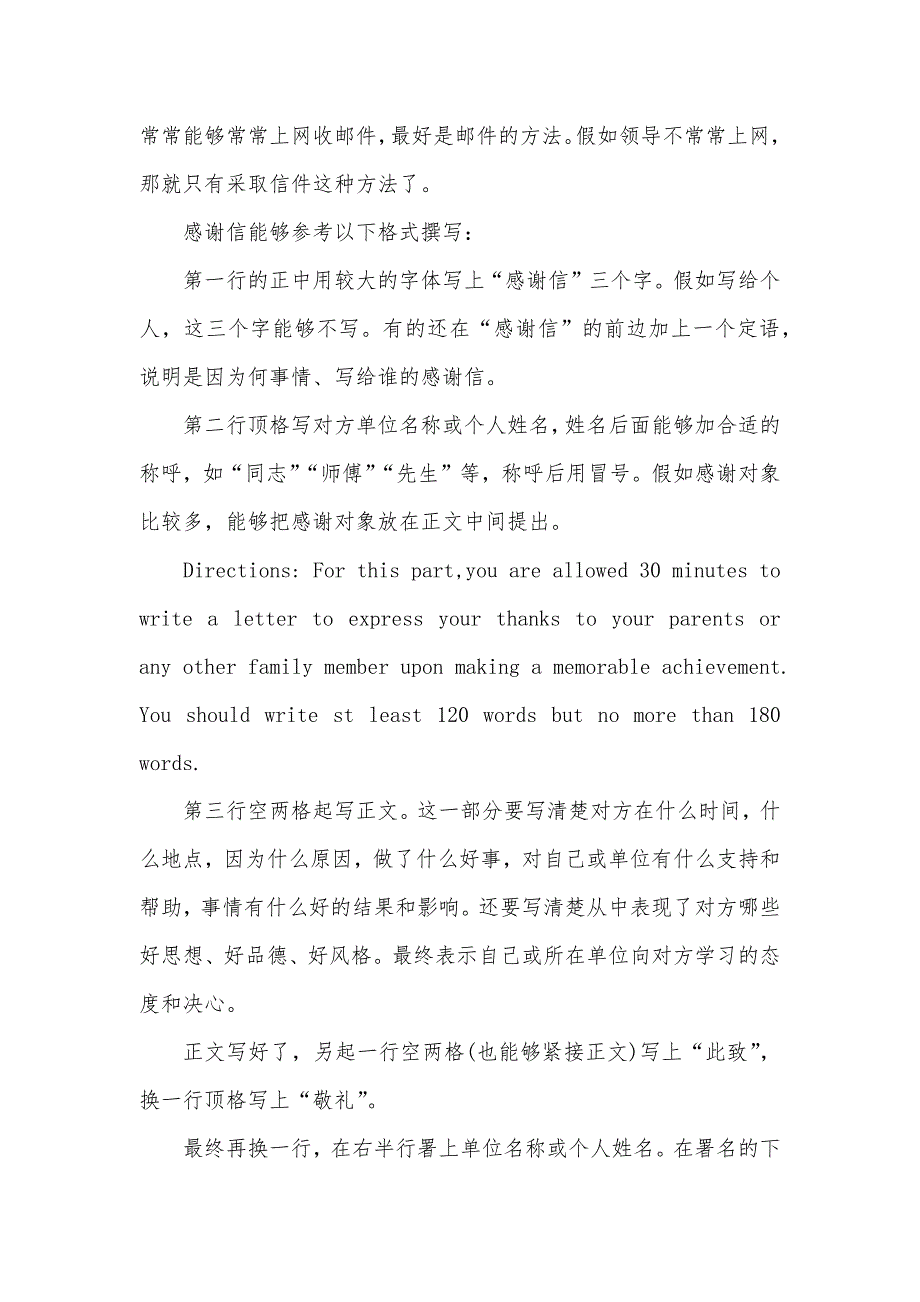 常常能够常常上网收邮件，最好是邮件的方法。假如领导不常常上网，
那就只有采取信件这种方法了。
感谢信能够参考以下格式撰写：
第一行的正中用较大的字体写上“感谢信”三个字。假如写给个
人，这三个字能够不写。有的还在“感谢信”的前边加上一个定语，
说明是因为何事情、写给谁的感谢信。
第二行顶格写对方单位名称或个人姓名，姓名后面能够加合适的
称呼，如“同志”“师傅”“先生”等，称呼后用冒号。假如感谢对象
比较多，能够把感谢对象放在正文中间提出。
Directions: For this part,you are allowed 30 minutes to
write a letter to express your thanks to your parents or
any other family member upon making a memorable achievement.
You should write st least 120 words but no more than 180
words.
第三行空两格起写正文。这一部分要写清楚对方在什么时间，什
么地点，因为什么原因，做了什么好事，对自己或单位有什么支持和
帮助，事情有什么好的结果和影响。还要写清楚从中表现了对方哪些
好思想、好品德、好风格。最终表示自己或所在单位向对方学习的态
度和决心。
正文写好了，另起一行空两格(也能够紧接正文)写上“此致”，
换一行顶格写上“敬礼”。
最终再换一行，在右半行署上单位名称或个人姓名。在署名的下